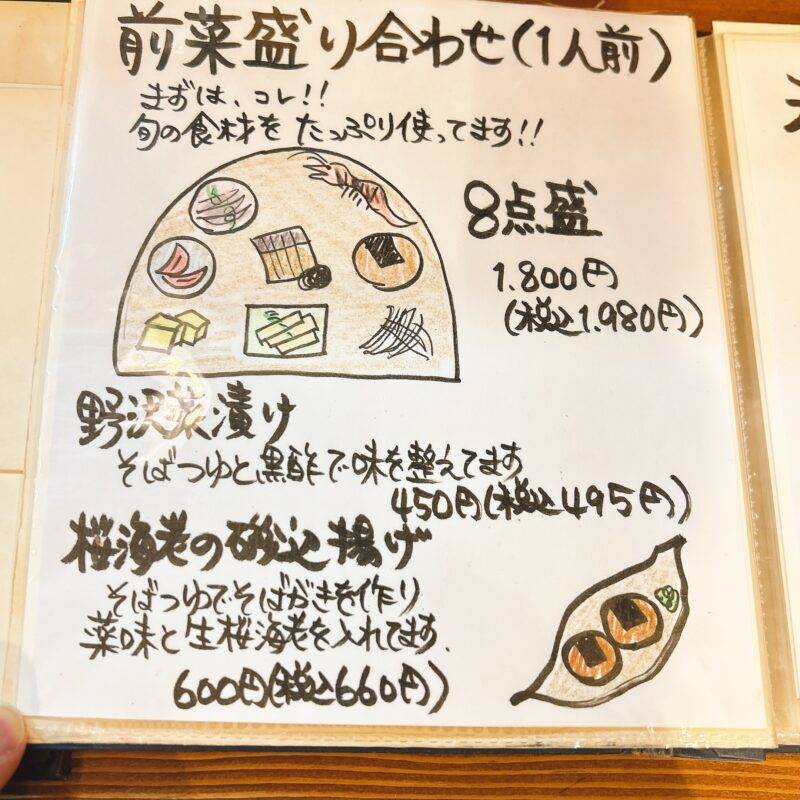 前菜盛り合わせ(1人前)
まずは、コレ!!
旬の食材を たっぷり使ってます!!
8点盛
1.800円
(税込1.980円)
野沢菜漬け
そばつゆと黒酢で味を整えてます
450円(税込495円)
桜海老の磯辺揚げ
そばつゆでそばがきを作り
薬味と生桜海老を入れてます.
600円(税込660円)